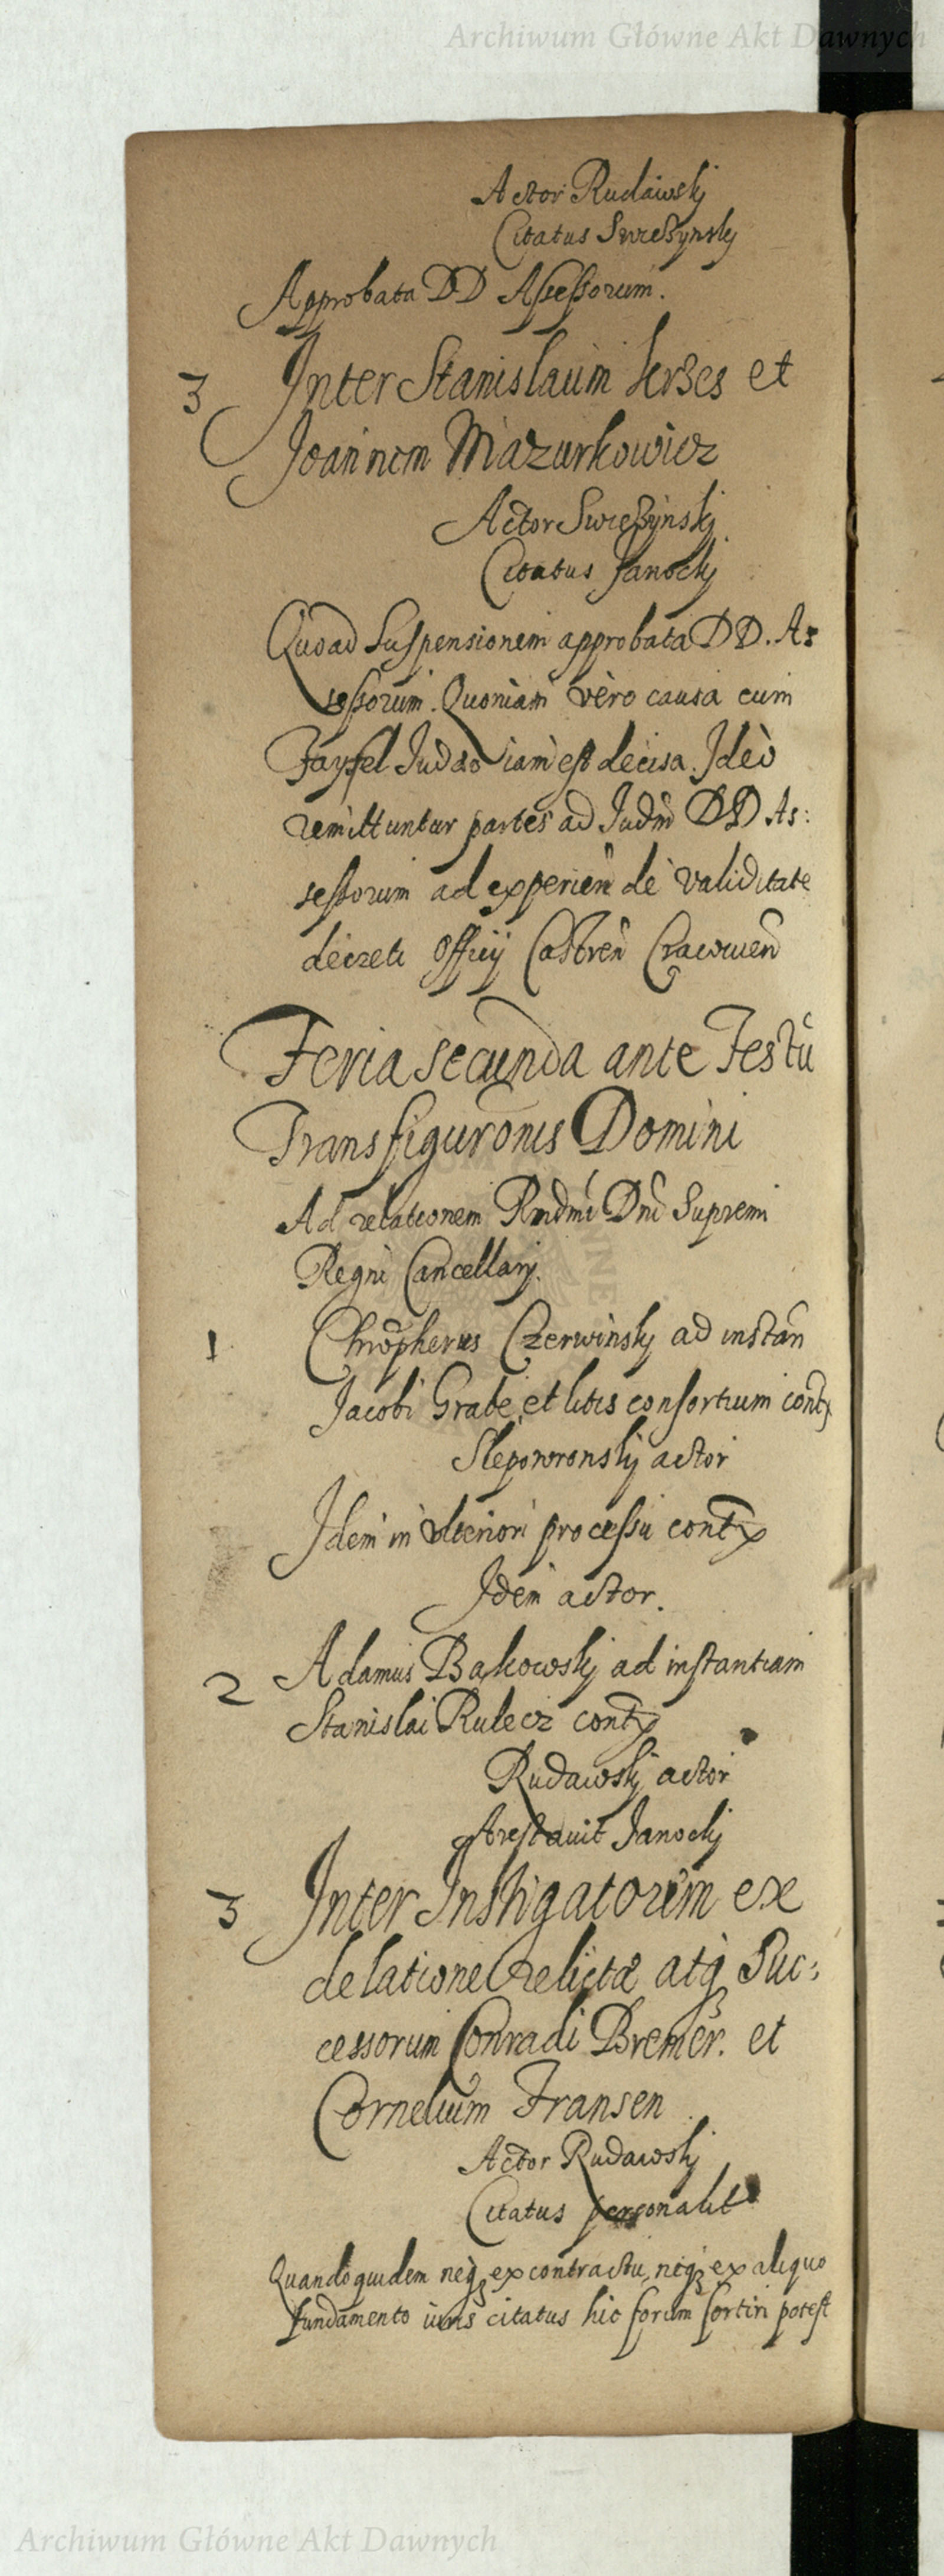 Archiwum Główne Akt Dawnych
Actor Rudawskj
Citatus Swieszynskj
Approbata DD Assessorum.
3 Inter Stanislaum et
Joannem Mazurkowicz
Actor Swieszynskj
Citatus Janockj
Quoad Suspensionem approbata DD. As
sessorum. Quoniam vero causa cum
Judæo iam est decisa. Ideo
remittuntur partes ad Judm DD As:
sessorum ad experien de validitate
decreti Officij Castren Cracovien
Feria secunda ante Festu
Transfiguronis Domini
Ad relationem Rndmi Dni Supremi
Regni Cancellarij.
1 Chrophorus Czerwinskj ad instan
Jacobi Grabe et litis consortium contx
Sleporowronskj actor
Idem in ulteriori processu contx
Idem actor.
2 Adamus Bąkowskj ad instantiam
Stanislai Rulecz contx
Rudawskj actor
Arestavit Janockj
3 Inter Instigatorem ex
delatione relictæ atq Suc:
cessorum Conradi Bremer. et
Cornelium Fransen
Actor Rudawskj
Citatus personalit
Quandoquidem neq ex contractu, neq ex aliquo
fundamento iuris citatus hic forum sortiri potest
Archiwum Główne Akt Dawnych